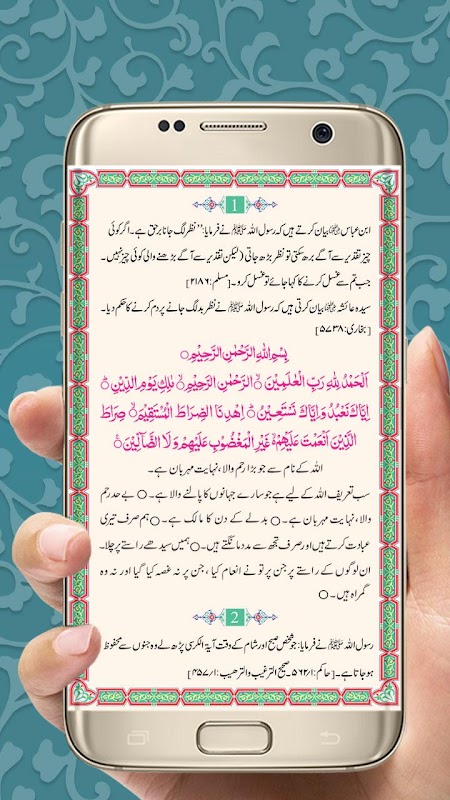 1
ابن عباس ؓ بیان کرتے ہیں کہ رسول اللہ ﷺ نے فرمایا: ’’نظر لگ جانا برحق ہے۔ اگر کوئی
چیز تقدیر سے آگے بڑھ سکتی تو نظر بڑھ جاتی (لیکن تقدیر سے آگے بڑھنے والی کوئی چیز نہیں۔
جب تم سے غسل کرنے کا کہا جائے تو غسل کرو۔ [مسلم: ۲۱۸۶]
سیدہ عائشہ ؓ بیان کرتی ہیں کہ رسول اللہ ﷺ نے نظر بد لگ جانے پر دم کرنے کا حکم دیا۔
[بخاری: ۵۷۳۸]
بِسْمِ اللّٰهِ الرَّحْمٰنِ الرَّحِيْمِ
اَلْحَمْدُ لِلّٰهِ رَبِّ الْعٰلَمِيْنَ الرَّحْمٰنِ الرَّحِيْمِ مٰلِكِ يَوْمِ الدِّيْنِ
اِيَّاكَ نَعْبُدُ وَاِيَّاكَ نَسْتَعِيْنُ اِهْدِنَا الصِّرَاطَ الْمُسْتَقِيْمَ صِرَاطَ
الَّذِيْنَ اَنْعَمْتَ عَلَيْهِمْ غَيْرِ الْمَغْضُوْبِ عَلَيْهِمْ وَلَا الضَّآلِّيْنَ
اللہ کے نام سے جو بڑا رحم والا، نہایت مہربان ہے۔
سب تعریف اللہ کے لیے ہے جو سارے جہانوں کا پالنے والا ہے۔ ○ بے حد رحم
والا، نہایت مہربان ہے۔ ○ بدلے کے دن کا مالک ہے۔ ○ ہم صرف تیری
عبادت کرتے ہیں اور صرف تجھ سے مدد مانگتے ہیں۔ ○ ہمیں سیدھے راستے پر چلا۔
ان لوگوں کے راستے پر جن پر تو نے انعام کیا، جن پر نہ غصہ کیا گیا اور نہ وہ
گمراہ ہیں۔ ○
2
رسول اللہ ﷺ نے فرمایا: جو شخص صبح اور شام کے وقت آیۃ الکرسی پڑھ لے وہ جنوں سے محفوظ
ہو جاتا ہے۔ [حاکم: ۱/۵۶۲۔ صحیح الترغیب والترھیب: ۱/۴۵۷]